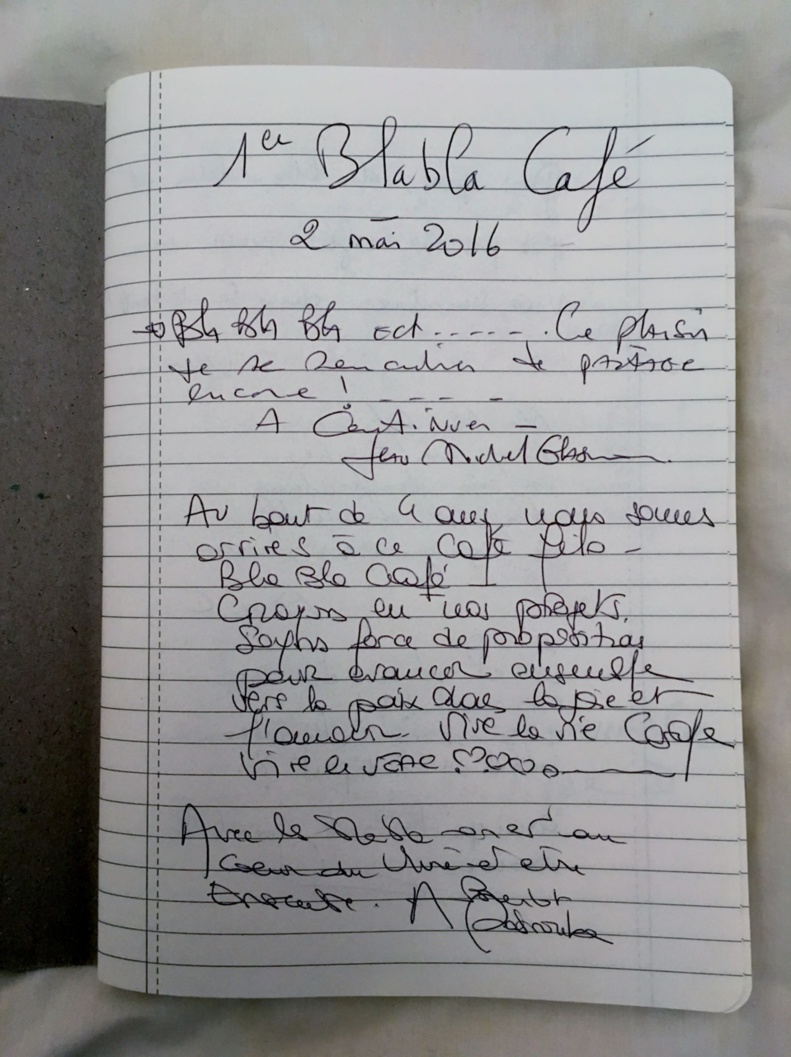 1er Blabla Café
2 mai 2016
Bla Bla Bla est ----- . Ce plaisir
de se rencontrer de partage
encore ! ----
A Continuer -
Jean Michel
Au bout de 4 ans nous sommes
arrivés à ce Café filo -
Bla Bla Café
Croyons en nos projets.
Soyons force de proposition
pour avancer ensemble
vers la paix dans la joie et
l'amour Vive la vie
Vive
Avec le Bla Bla on est au
Coeur du Vivre et être
Ensemble. A